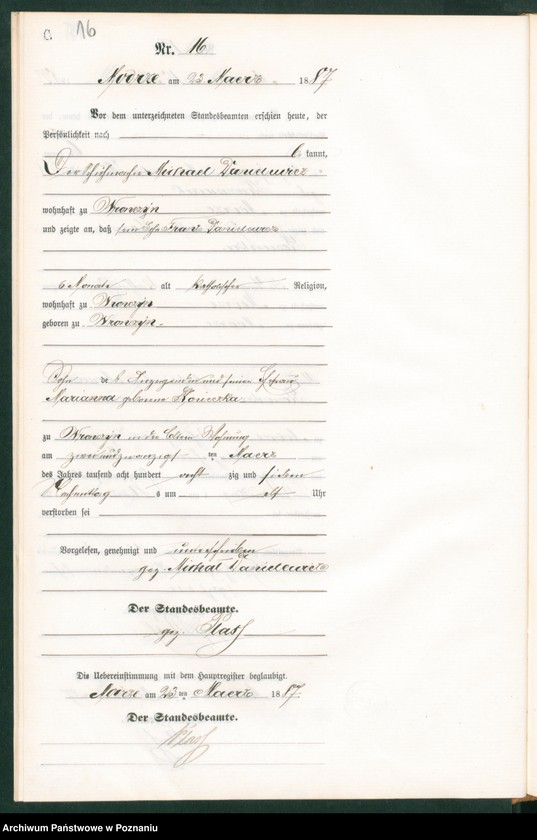 C. 16
Nr. 16
am 23 Maerz 1887
Vor dem unterzeichneten Standesbeamten erschien heute, der
Persönlichkeit nach
be kannt,
Der Michael Dandewicz
wohnhaft zu Wronczyn
und zeigte an, daß sein Sohn Franz
6 Monate alt katholischer Religion,
wohnhaft zu Wronczyn
geboren zu Wronczyn
Sohn des und seiner Ehefrau
Marianna geborene
zu Wronczyn in der Wohnung
am zweiundzwanzigsten Maerz
des Jahres tausend acht hundert acht zig und sieben
Nachmittags um elf Uhr
verstorben sei
Vorgelesen, genehmigt und unterschrieben
gez. Michal
Der Standesbeamte.
gez.
Die Uebereinstimmung mit dem Hauptregister beglaubigt.
am 23 ten Maerz 1887.
Der Standesbeamte.
Archiwum Państwowe w Poznaniu